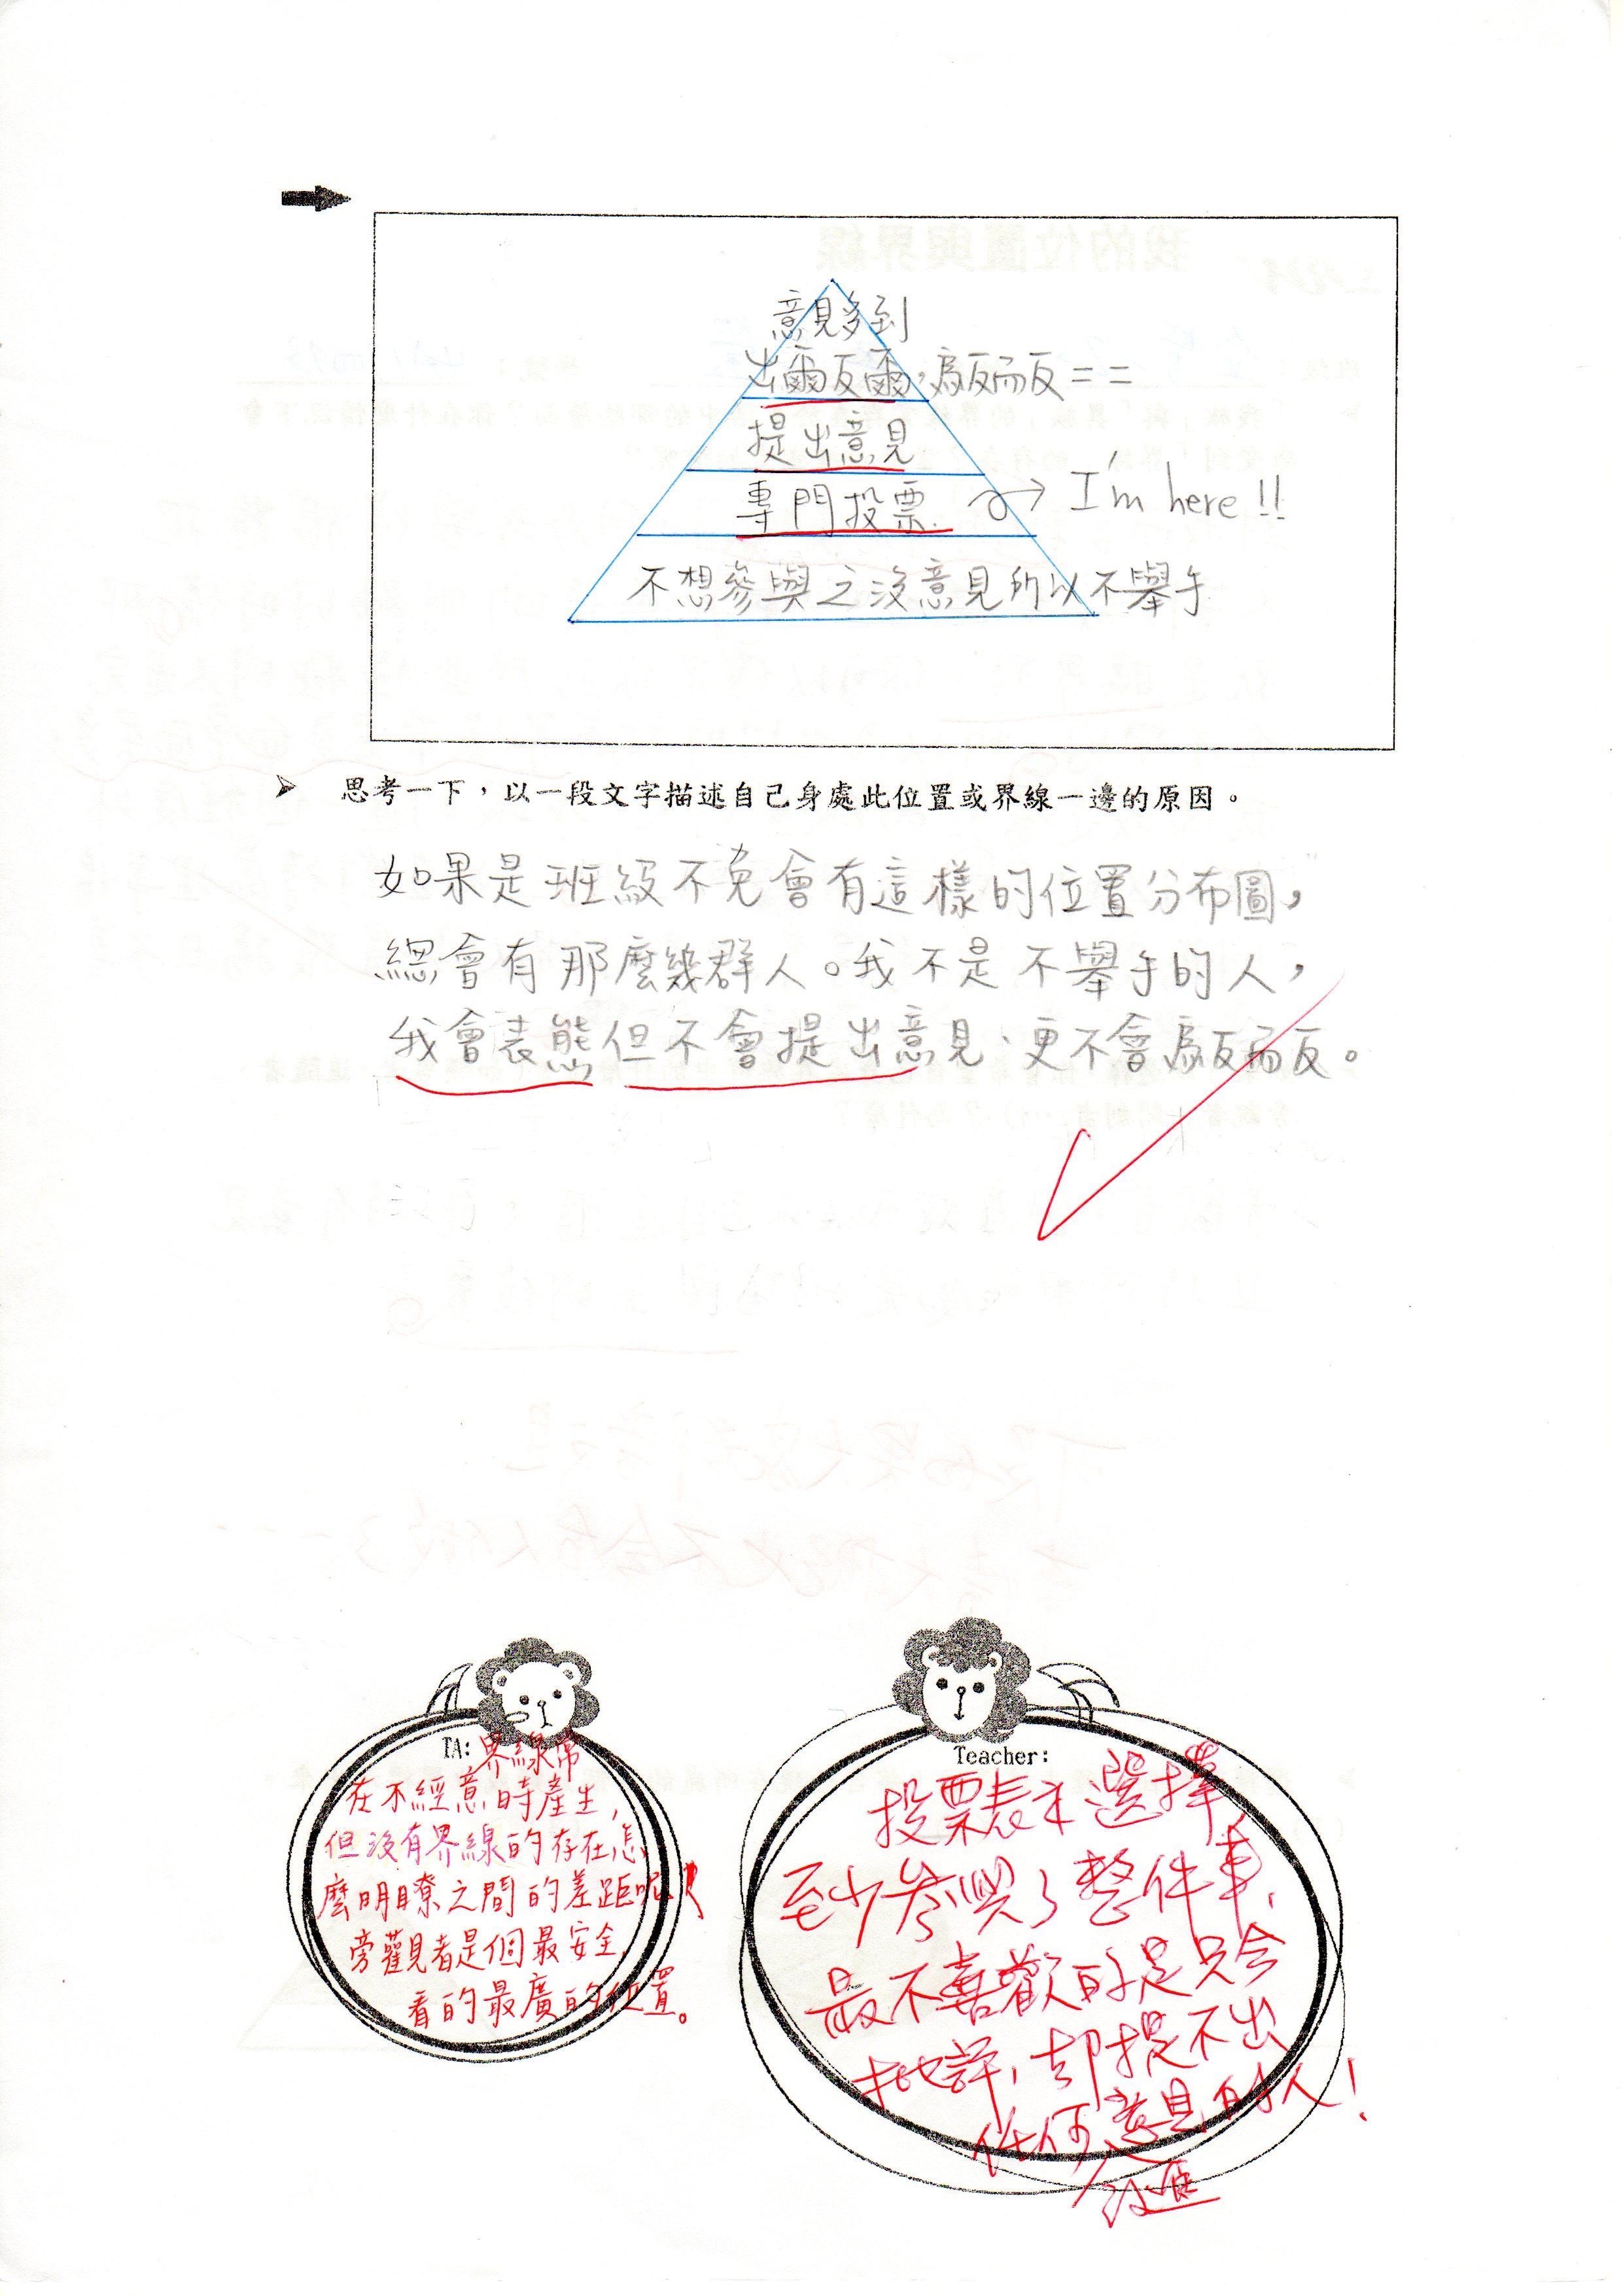 意見多到
出爾反爾,為反而反==
提出意見
專門投票. → I'm here!!
不想參與之沒意見所以不舉手
➤ 思考一下，以一段文字描述自己身處此位置或界線一邊的原因。
如果是班級不免會有這樣的位置分布圖，
總會有那麼幾群人。我不是不舉手的人，
我會表態但不會提出意見、更不會為反而反。
TA: 界線常
在不經意時產生,
但沒有界線的存在怎
麼明瞭之間的差距呢?
旁觀者是個最安全,
看的最廣的位置。
Teacher:
投票表示選擇,
至少參與了整件事,
最不喜歡的是只會
批評,卻提不出
任何意見的人!